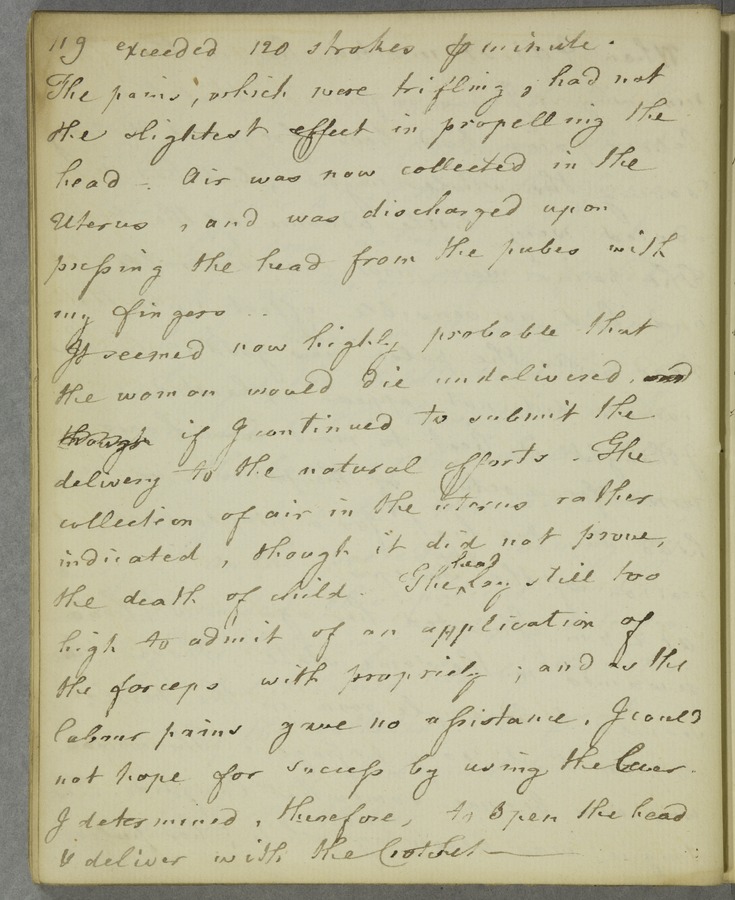 119 exceeded 120 strokes ⅌ minute.
The pains, which were trifling, had not
the slightest effect in propelling the
head - Air was now collected in the
Uterus, and was discharged upon
pressing the head from the pubes with
my fingers..
It seemed now highly probable that
the woman would die undelivered, and
though if I continued to submit the
delivery to the natural efforts. The
collection of air in the uterus rather
indicated, though it did not prove,
the death of child. The head lay still too
high to admit of an application of
the forceps with propriety; and as the
labour pains gave no assistance, I could
not hope for success by using the Lever.
I determined, therefore, to open the head
& deliver with the Crotchet